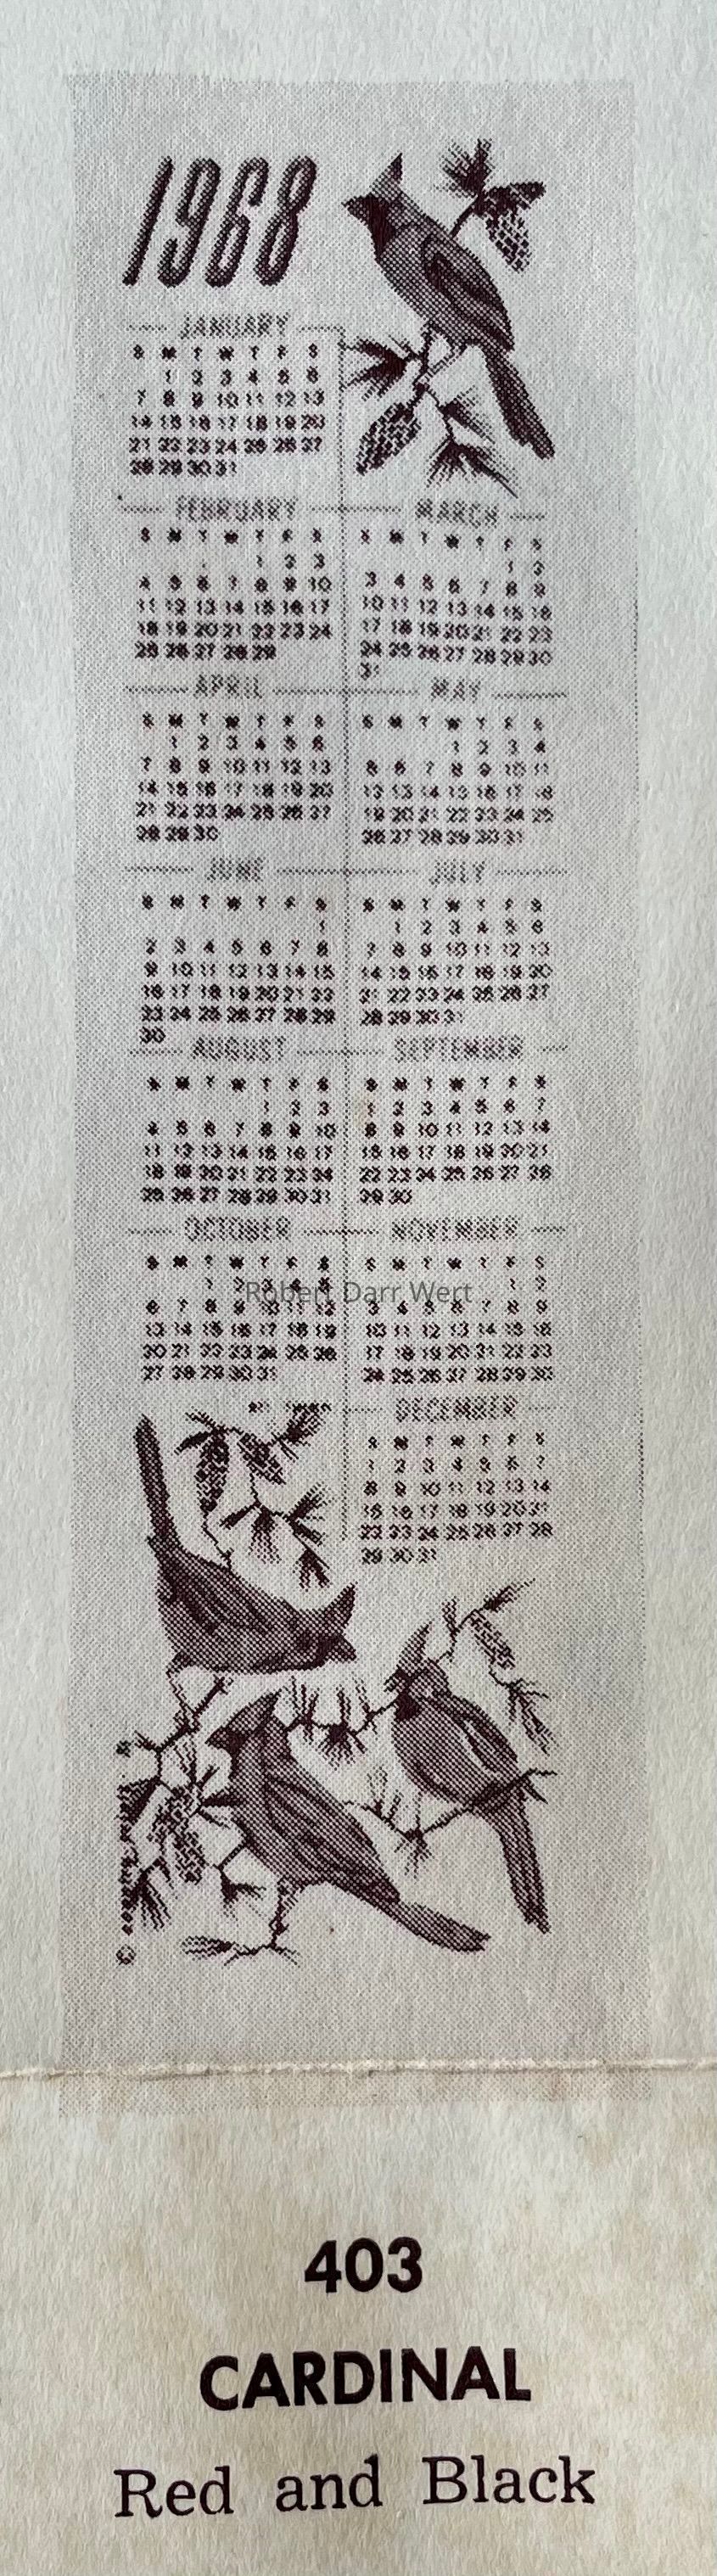 1968
JANUARY
S M T W T F S
1 2 3 4 5 6
7 8 9 10 11 12 13
14 15 16 17 18 19 20
21 22 23 24 25 26 27
28 29 30 31
FEBRUARY
S M T W T F S
1 2 3
4 5 6 7 8 9 10
11 12 13 14 15 16 17
18 19 20 21 22 23 24
25 26 27 28 29
MARCH
S M T W T F S
1 2
3 4 5 6 7 8 9
10 11 12 13 14 15 16
17 18 19 20 21 22 23
24 25 26 27 28 29 30
31
APRIL
S M T W T F S
1 2 3 4 5 6
7 8 9 10 11 12 13
14 15 16 17 18 19 20
21 22 23 24 25 26 27
28 29 30
MAY
S M T W T F S
1 2 3 4
5 6 7 8 9 10 11
12 13 14 15 16 17 18
19 20 21 22 23 24 25
26 27 28 29 30 31
JUNE
S M T W T F S
1
2 3 4 5 6 7 8
9 10 11 12 13 14 15
16 17 18 19 20 21 22
23 24 25 26 27 28 29
30
JULY
S M T W T F S
1 2 3 4 5 6
7 8 9 10 11 12 13
14 15 16 17 18 19 20
21 22 23 24 25 26 27
28 29 30 31
AUGUST
S M T W T F S
1 2 3
4 5 6 7 8 9 10
11 12 13 14 15 16 17
18 19 20 21 22 23 24
25 26 27 28 29 30 31
SEPTEMBER
S M T W T F S
1 2 3 4 5 6 7
8 9 10 11 12 13 14
15 16 17 18 19 20 21
22 23 24 25 26 27 28
29 30
OCTOBER
S M T W T F S
1 2 3 4 5
6 7 8 9 10 11 12
13 14 15 16 17 18 19
20 21 22 23 24 25 26
27 28 29 30 31
NOVEMBER
S M T W T F S
1 2
3 4 5 6 7 8 9
10 11 12 13 14 15 16
17 18 19 20 21 22 23
24 25 26 27 28 29 30
Robert Darr Wert
DECEMBER
S M T W T F S
1 2 3 4 5 6 7
8 9 10 11 12 13 14
15 16 17 18 19 20 21
22 23 24 25 26 27 28
29 30 31
©
403
CARDINAL
Red and Black